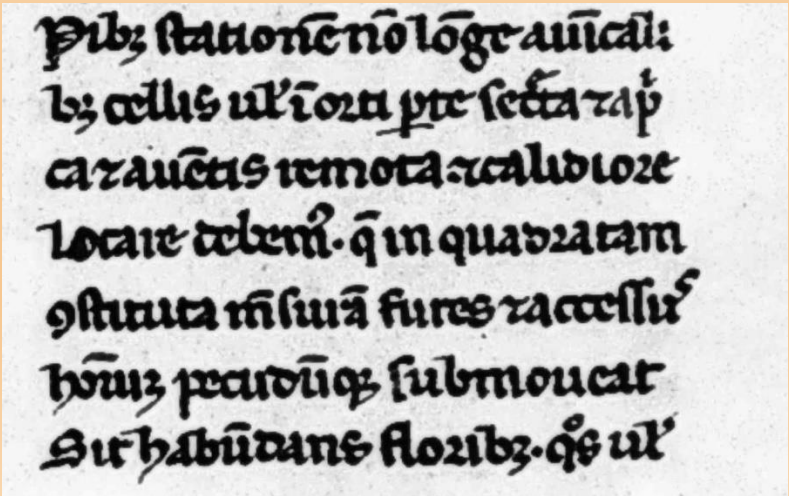 Pibꝫ ſtationē nō lōge auīcali
bꝫ cellis ul̓ ī orti ꝑte ſecͤta ⁊ apͥ
ca ⁊ auētis remota ⁊ calidiore
Locare debemꝰ. q̄ in quadratam
ꝯſtituta m̄ſurā fures ⁊ acceſſuˢ
hoīuꝫ pecudūqꝫ ſubmoueat
Sit habūdans floribꝫ. qͦs ul̓